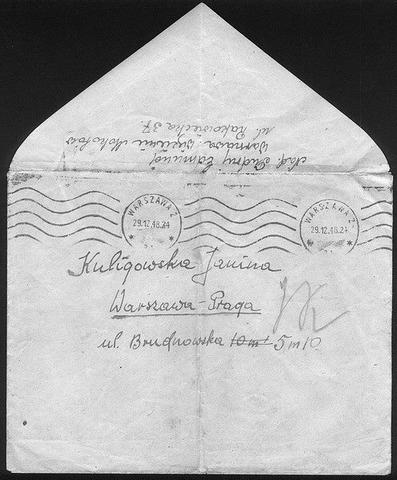 Nad. Pudry Edmund
Warszawa Więzienie Mokotów
ul. Rakowiecka 37.
WARSZAWA 2
29.12.48.24
WARSZAWA 2
29.12.48.24
Kuligowska Janina
Warszawa-Praga
ul. Brudnowska 10 m 5 m 10